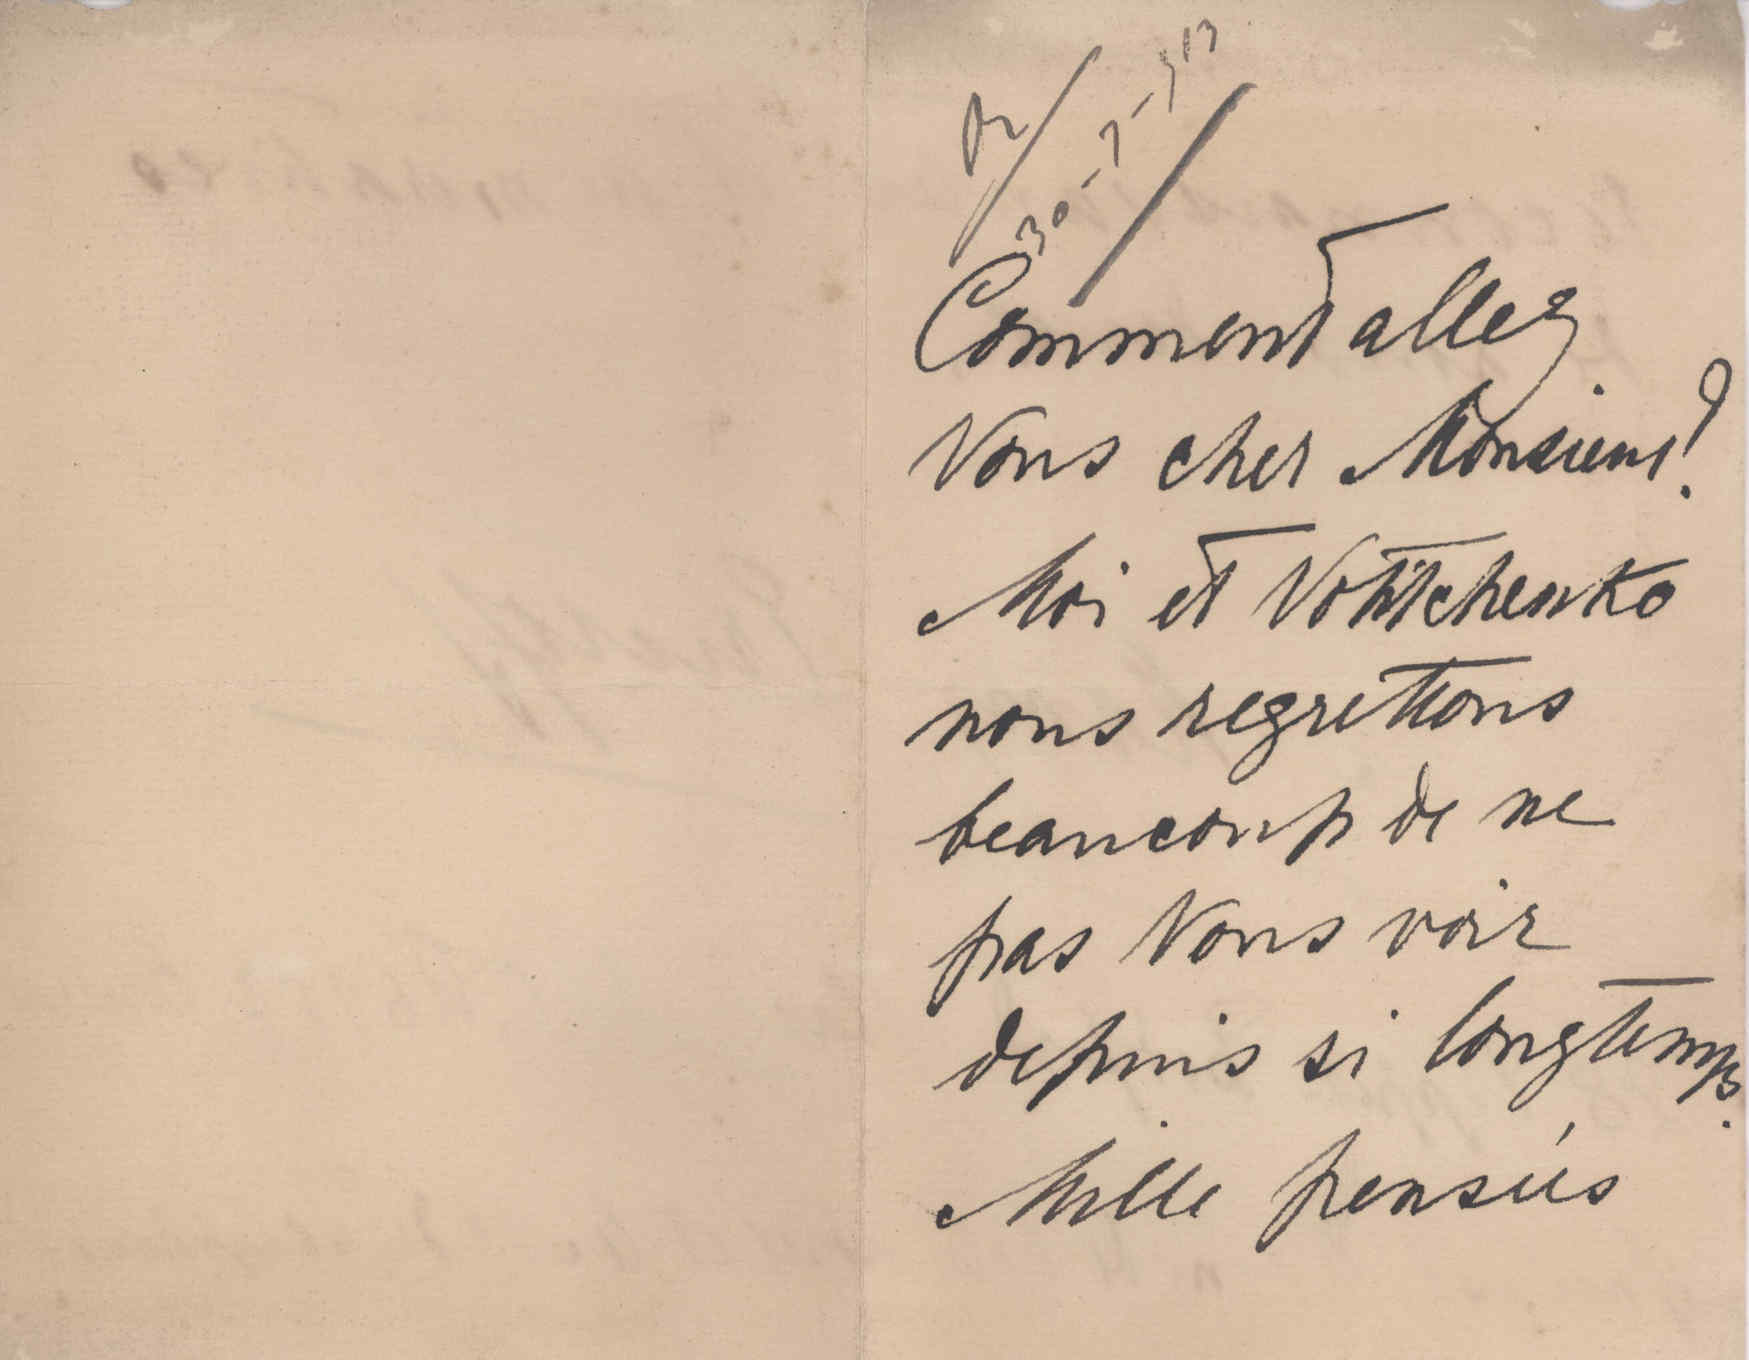 30-7-913
Comment allez
Vous cher Monsieur?
Moi et Votitchenko
nous regrettons
beaucoup de ne
pas Vous voir
depuis si longtemps.
Mille pensées